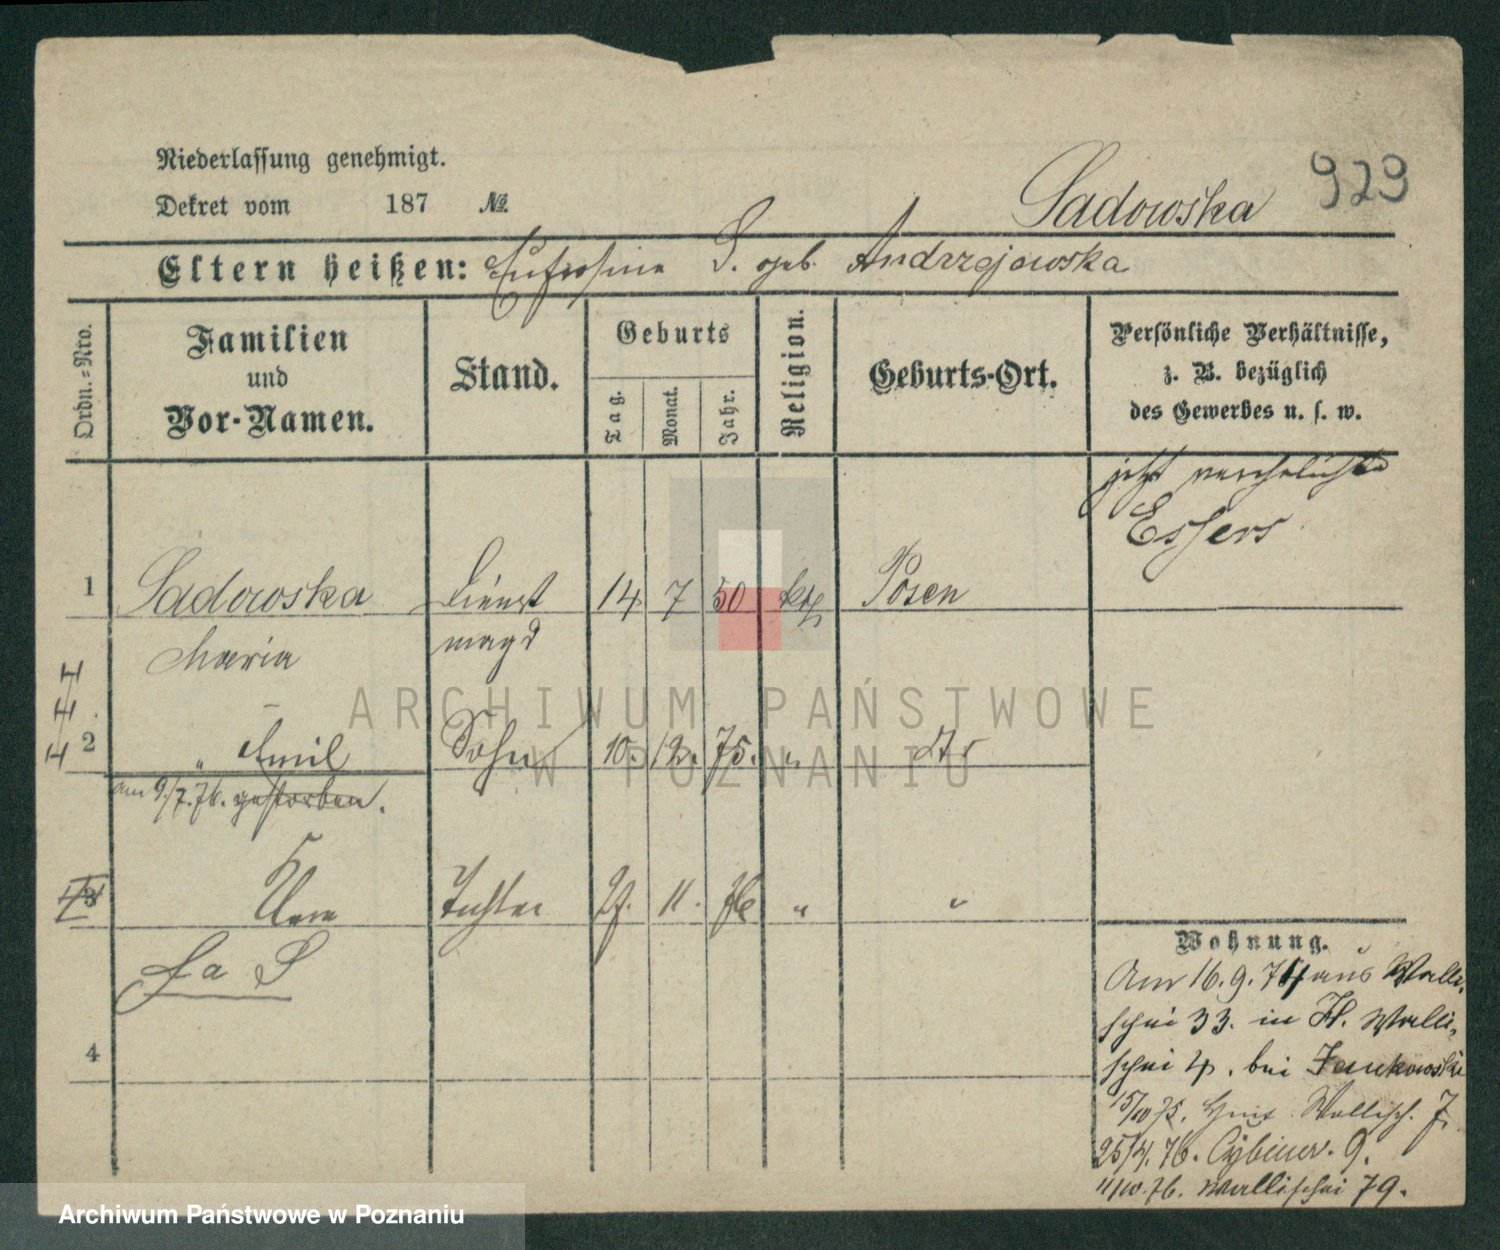 Niederlassung genehmigt.
Dekret vom 187 №
Sadowska 929
Eltern heißen: Eufrosine S. geb. Andrzejewska
Ordn.-Nro.
Familien und Vor-Namen.
Stand.
Geburts
Tag. Monat. Jahr.
Religion.
Geburts-Ort.
Persönliche Verhältnisse,
z. B. bezüglich
des Gewerbes u. s. w.
jetzt verehelichte
Essers
1 Sadowska Dienst 14 7 50 kth Posen
Maria magd
2 " Emil Sohn 10. 12. 75. "
am 9/7.76. gestorben.
3 Tochter 11. 76 " "
4
Wohnung.
Am 16.9.74 aus Walli-
schei 33. in H. Walli-
schei 4. bei Jankowski
15/10 75. Wallisch. 7.
25/4.76. Cybiner. 9.
11/10.76. Wallischei 79.
ARCHIWUM PAŃSTWOWE
W POZNANIU
Archiwum Państwowe w Poznaniu